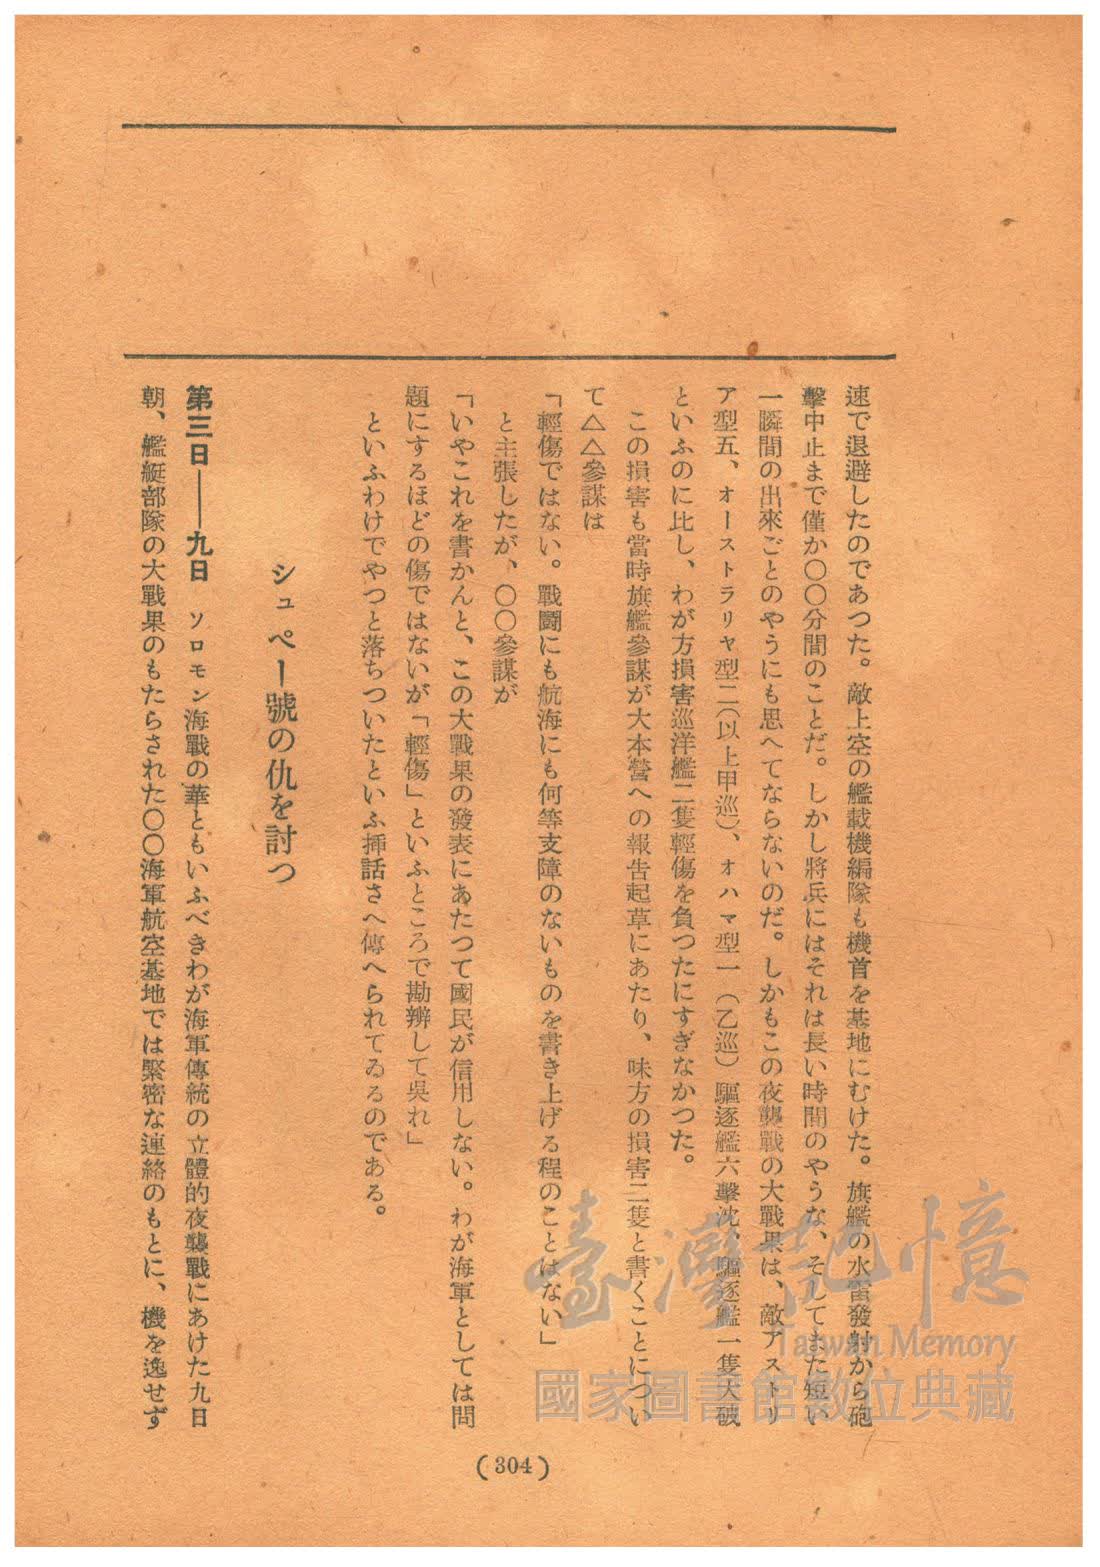 速で退避したのであつた。敵上空の艦載機編隊も機首を基地にむけた。旗艦の水雷發射から砲
擊中止まで僅か〇〇分間のことだ。しかし將兵にはそれは長い時間のやうな、そしてまた短い
一瞬間の出來ごとのやうにも思へてならないのだ。しかもこの夜襲戰の大戰果は、敵アストリ
ア型五、オーストラリヤ型二(以上甲巡)、オハマ型一(乙巡)驅逐艦六擊沈、驅逐艦一隻大破
といふのに比し、わが方損害巡洋艦二隻輕傷を負つたにすぎなかつた。
この損害も當時旗艦參謀が大本營への報告起草にあたり、味方の損害二隻と書くことについ
て△△參謀は
「輕傷ではない。戰鬪にも航海にも何等支障のないものを書き上げる程のことはない」
と主張したが、〇〇參謀が
「いやこれを書かんと、この大戰果の發表にあたつて國民が信用しない。わが海軍としては問
題にするほどの傷ではないが「輕傷」といふところで勘辨して吳れ」
といふわけでやつと落ちついたといふ揷話さへ傳へられてゐるのである。
シュペー號の仇を討つ
第三日――九日 ソロモン海戰の華ともいふべきわが海軍傳統の立體的夜襲戰にあけた九日
朝、艦艇部隊の大戰果のもたらされた〇〇海軍航空基地では緊密な連絡のもとに、機を逸せず
(304)
臺灣記憶
Taiwan Memory
國家圖書館數位典藏